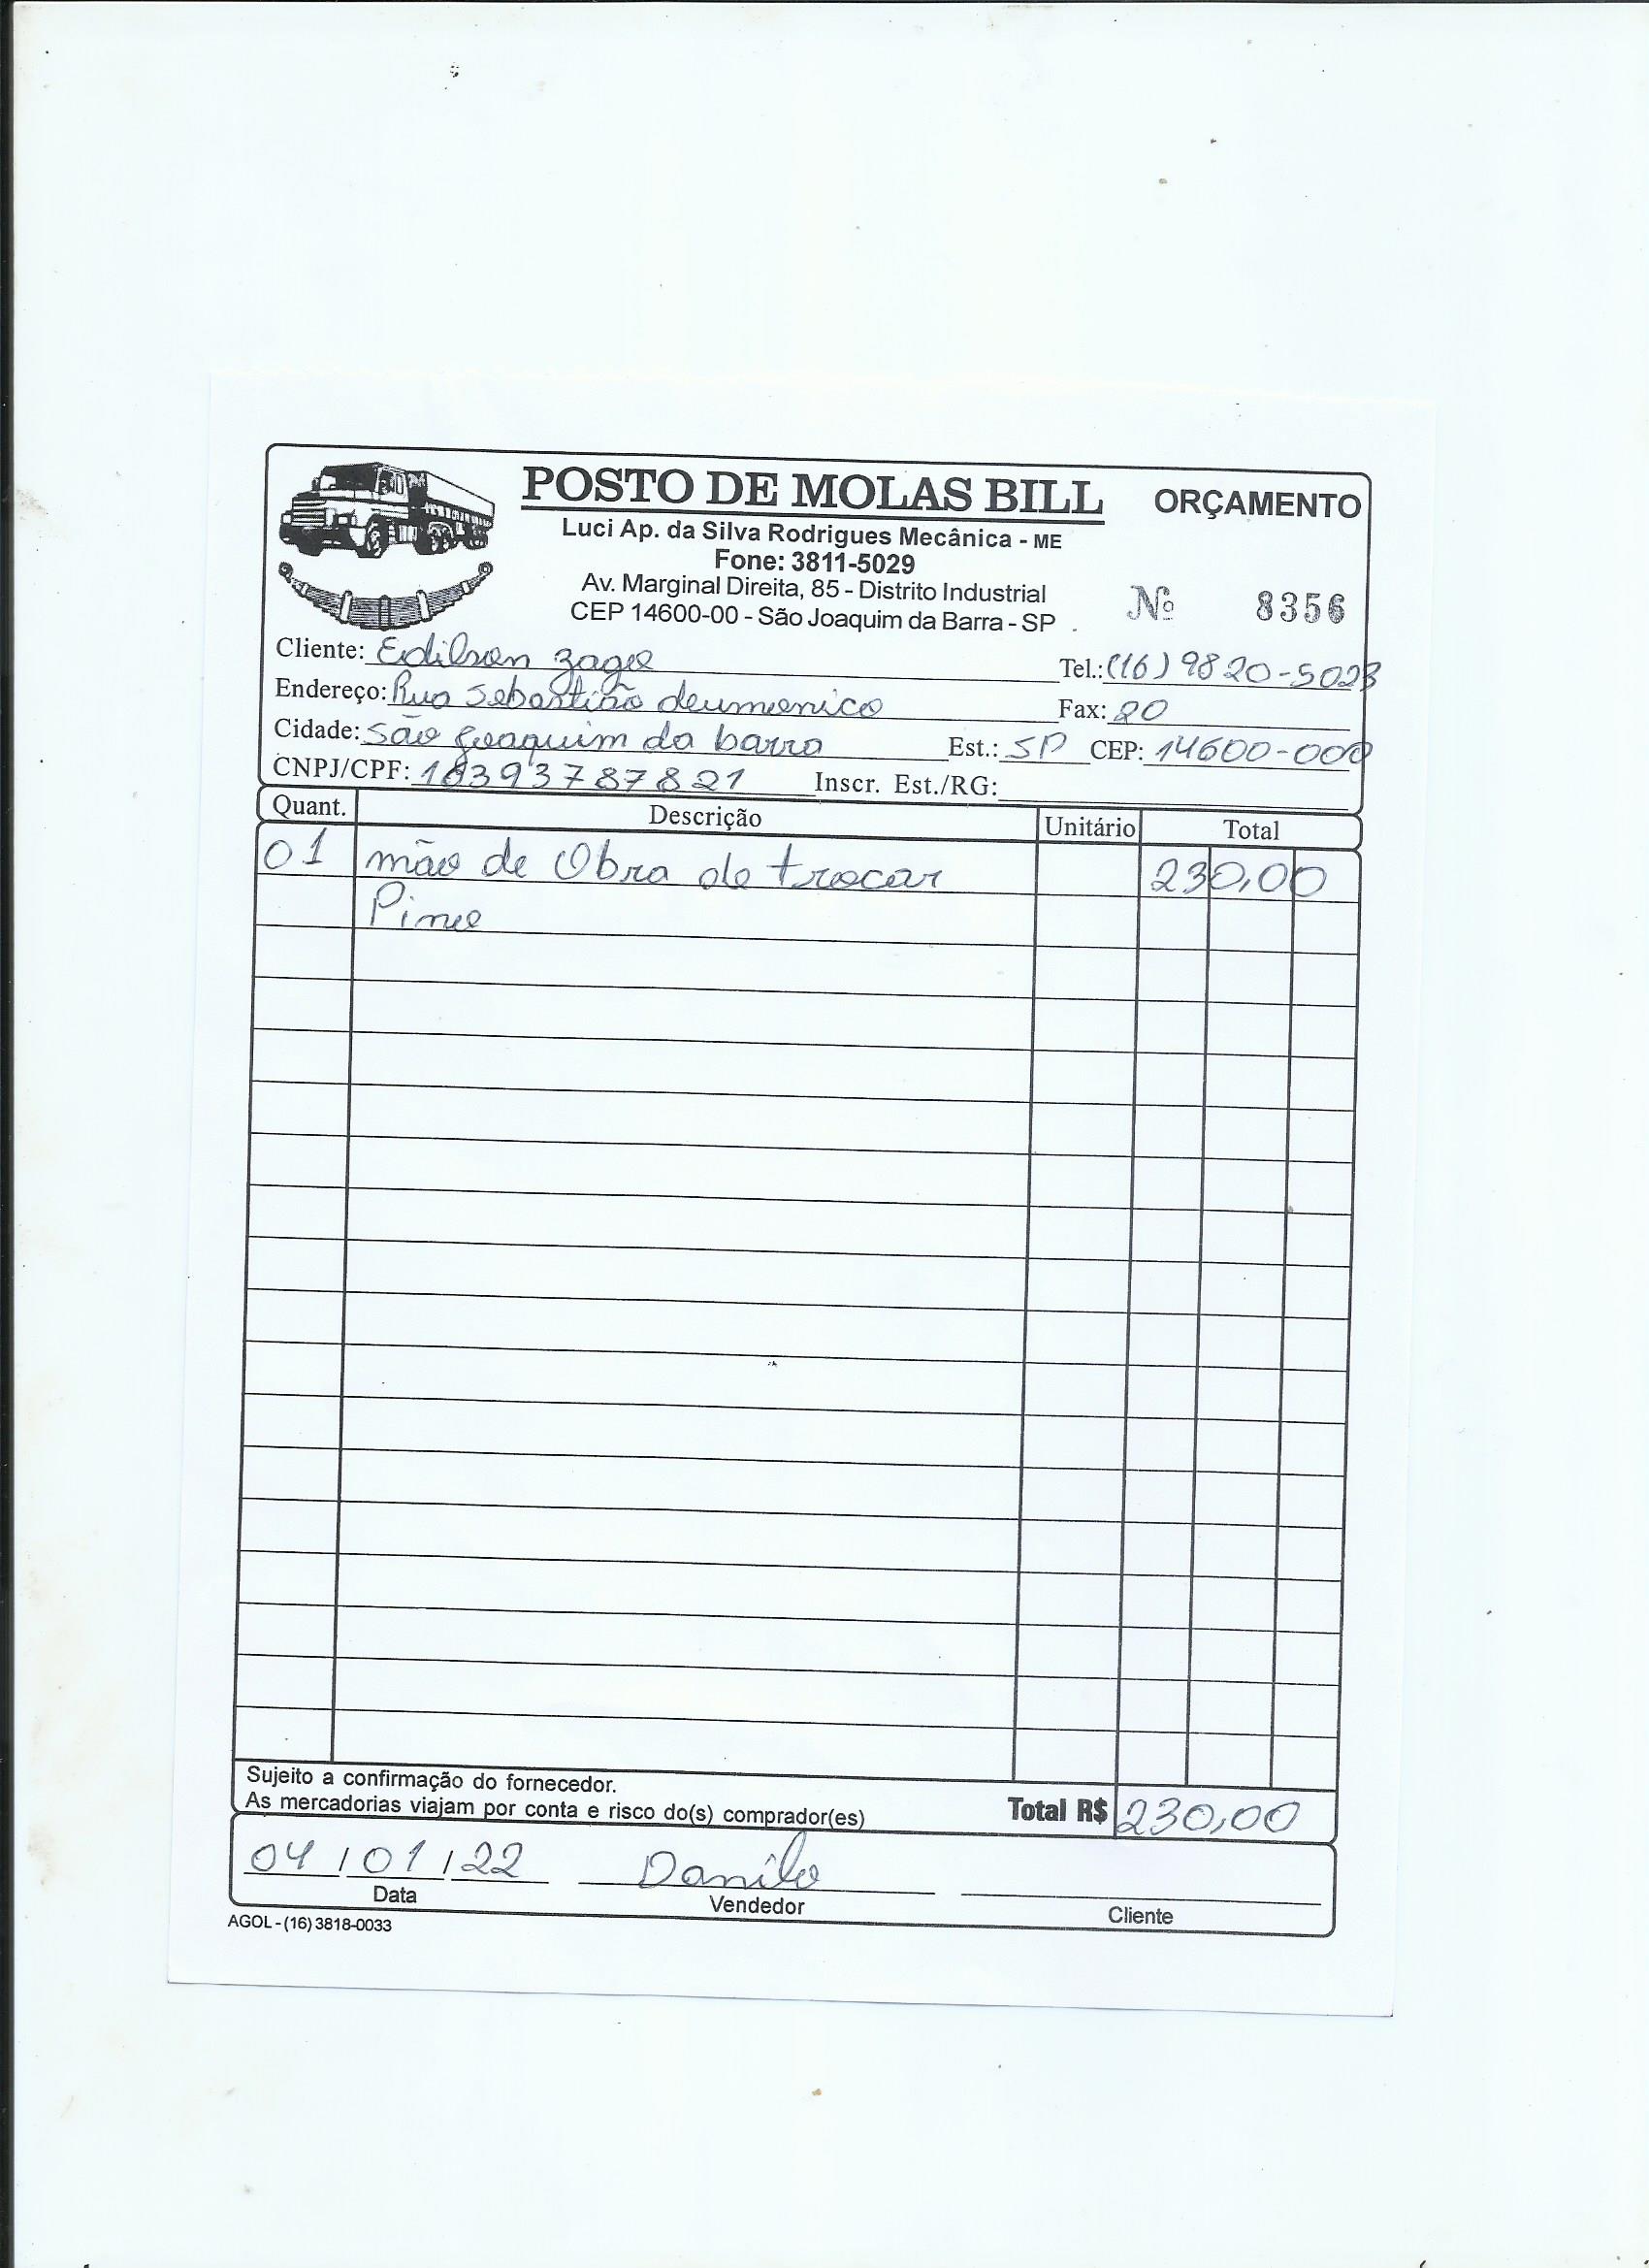 POSTO DE MOLAS BILL ORÇAMENTO
Luci Ap. da Silva Rodrigues Mecânica - ME
Fone: 3811-5029
Av. Marginal Direita, 85 - Distrito Industrial
CEP 14600-00 - São Joaquim da Barra - SP
Nº 8356
Cliente: Edilson zago Tel.: (16) 9820-5023
Endereço: Rua Sebastião deumenico Fax: 20
Cidade: São Joaquim da barra Est.: SP CEP: 14600-000
CNPJ/CPF: 18393787821 Inscr. Est./RG:
Quant. Descrição Unitário Total
01 mão de Obra de trocar 230,00
Pino
Sujeito a confirmação do fornecedor.
As mercadorias viajam por conta e risco do(s) comprador(es) Total R$ 230,00
04 / 01 / 22 Danilo
Data Vendedor Cliente
AGOL - (16) 3818-0033